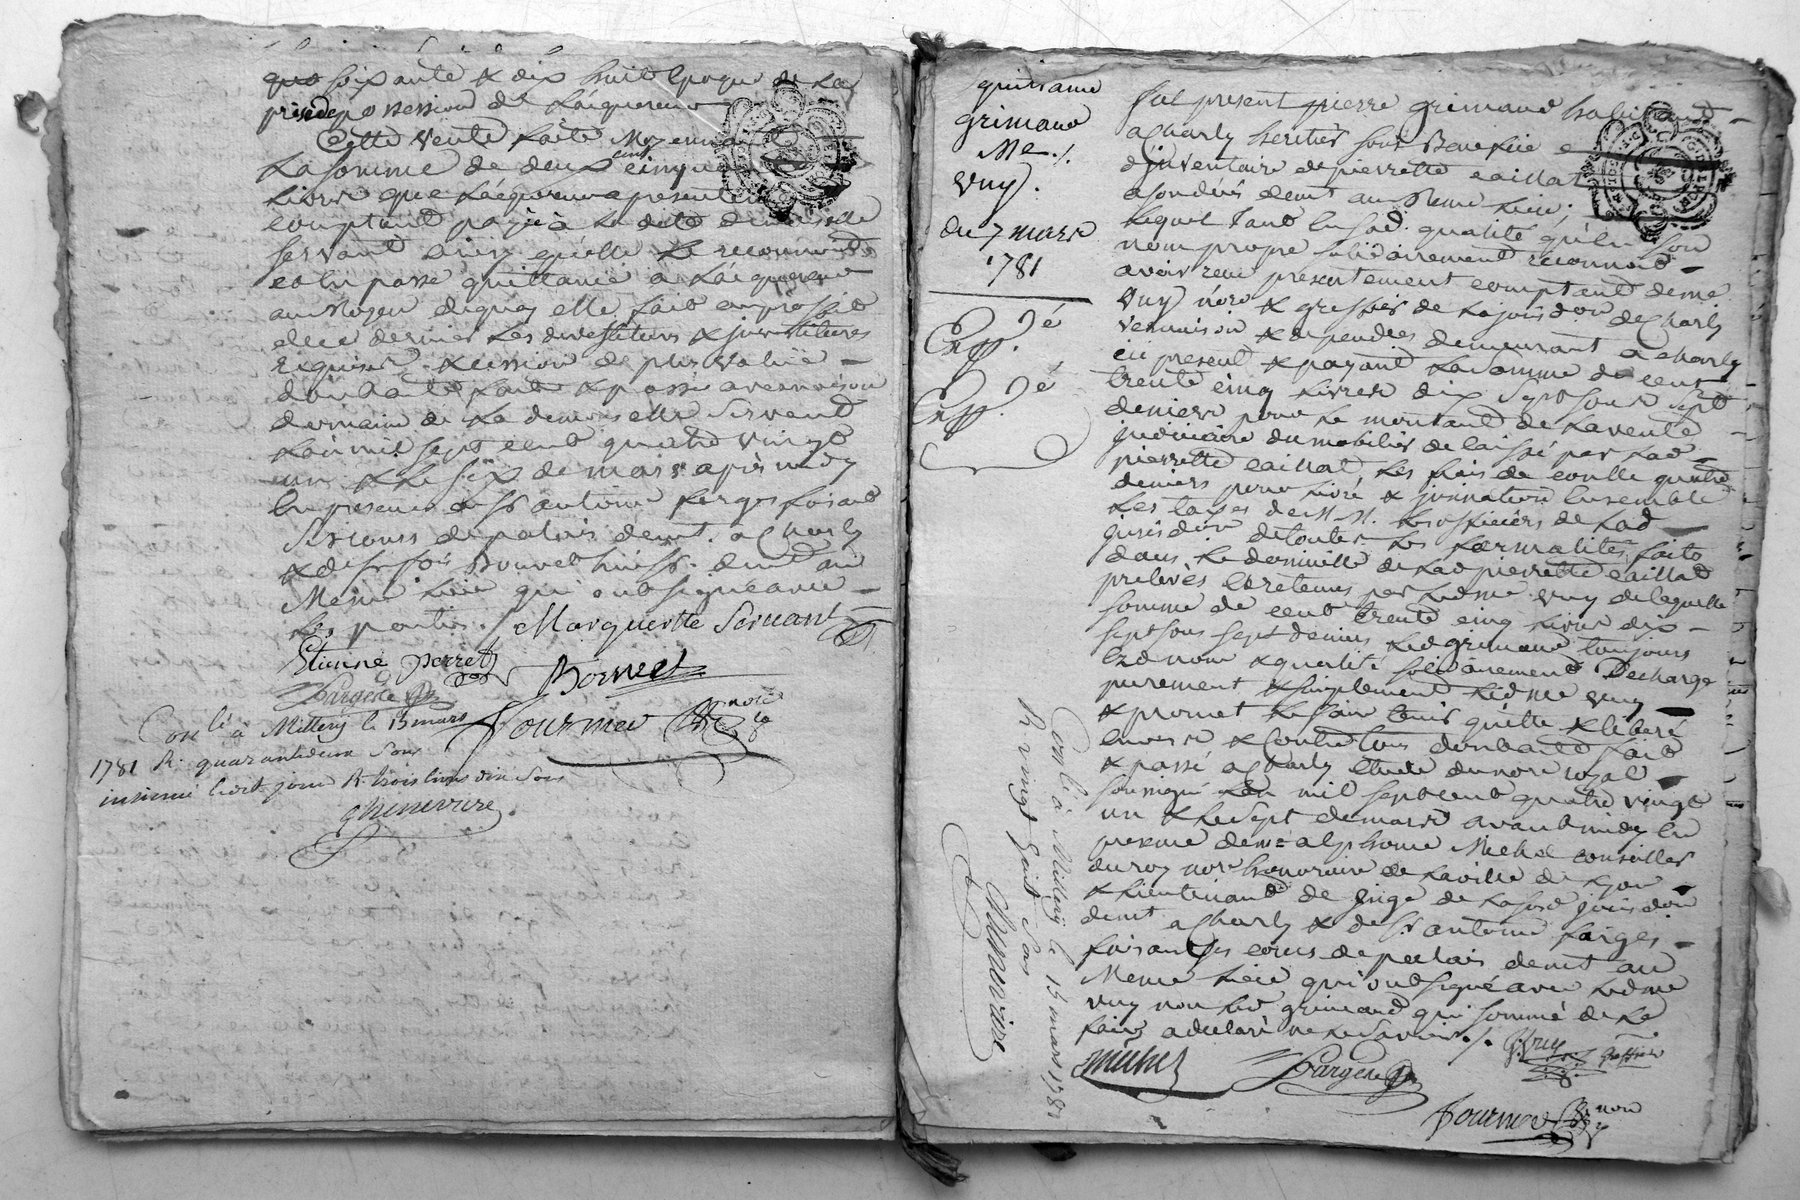 soixante & dix huit Epoque de La
prise de possession de L'acquereur
Cette vente faite Moyennant
La somme de deux cent cinqua
Livres que L'acquereur a presentem
comptant payé à La dite demoiselle
servant ainsy qu'elle Le reconnoit
et lui passe quittance à L'acquereur
au Moyen de quoy elle fait au proffit
de ce dernier Les devestitures & investitures
requises & cession de plus value
dont acte fait & passé a vernaison
domicile de La demoiselle Servant
L'an mil sept cent quatre vingt
un & Le six de mars après midy
En presence de Sr antoine farges faisant
Les cours de palais demt. a Charly
& de Sr fois Bonnet huissr. demt au
Meme Lieu qui ont signé avec
Les parties ./. Marguerite Servant
Etienne perret
Bonnet
fargere
Fournier nore
Conlé à Millery le 15 mars
1781 R. quarante deux sous
insinué ledit jour R. trois livres dix sous
Chenevrire
quittance
Grimaud
Me ./.
Vuy.
du 7 mars
1781
Exp. é
Exp. é
Conlé à Millery le 15 mars 1781
R. vingt huit sous
Chenevrire
fut present pierre grimaud habitant
a Charly heritier sous Benefice
d'inventaire de pierrette caillat
demt au Meme Lieu ;
Lequel tant en sad. qualité qu'en son
nom propre solidairement reconnoit
avoir recu presentement comptant de me
Vuy nore & greffier de La jurisdon de Charly
vernaison & dependces demeurant a Charly
ici present & payant La somme de cent
trente cinq Livres dix sept sous sept
deniers pour Le montant de La vente
judiciaire du mobilier de laissé par Lad
pierrette caillat, Les frais de controlle quatre
deniers pour Livre & Ensemble
Les taxes de M. M. Les officiers de Lad
jurisdon de toutes Les formalités faites
dans Le domicille de Lad pierrette caillat
prelevés & retenus par Led me vuy de laquelle
somme de cent trente cinq Livres dix
sept sous sept deniers Led grimaud toujours
Ezd nom & qualité solidairement Decharge
purement & simplement Led me vuy
& promet Le faire tenir quitte & Liberé
envers & Contre tous dont acte fait
& passé a Charly Etude du nore royal
soussigné L'an mil sept cent quatre vingt
un & Le sept de mars avant midy En
presence de me alphonse Michel conseiller
du roy nore honoraire de La ville de Lyon
& Lieutenant de juge de La jurisdon
demt a Charly & de Sr antoine farges
faisant Les cours de palais demt au
Meme Lieu qui ont signé avec Led me
vuy non Led grimaud qui sommé de Le
faire a declaré ne Le savoir ./. G. Vuy
greffier
Michel
fargere
Fournier nore